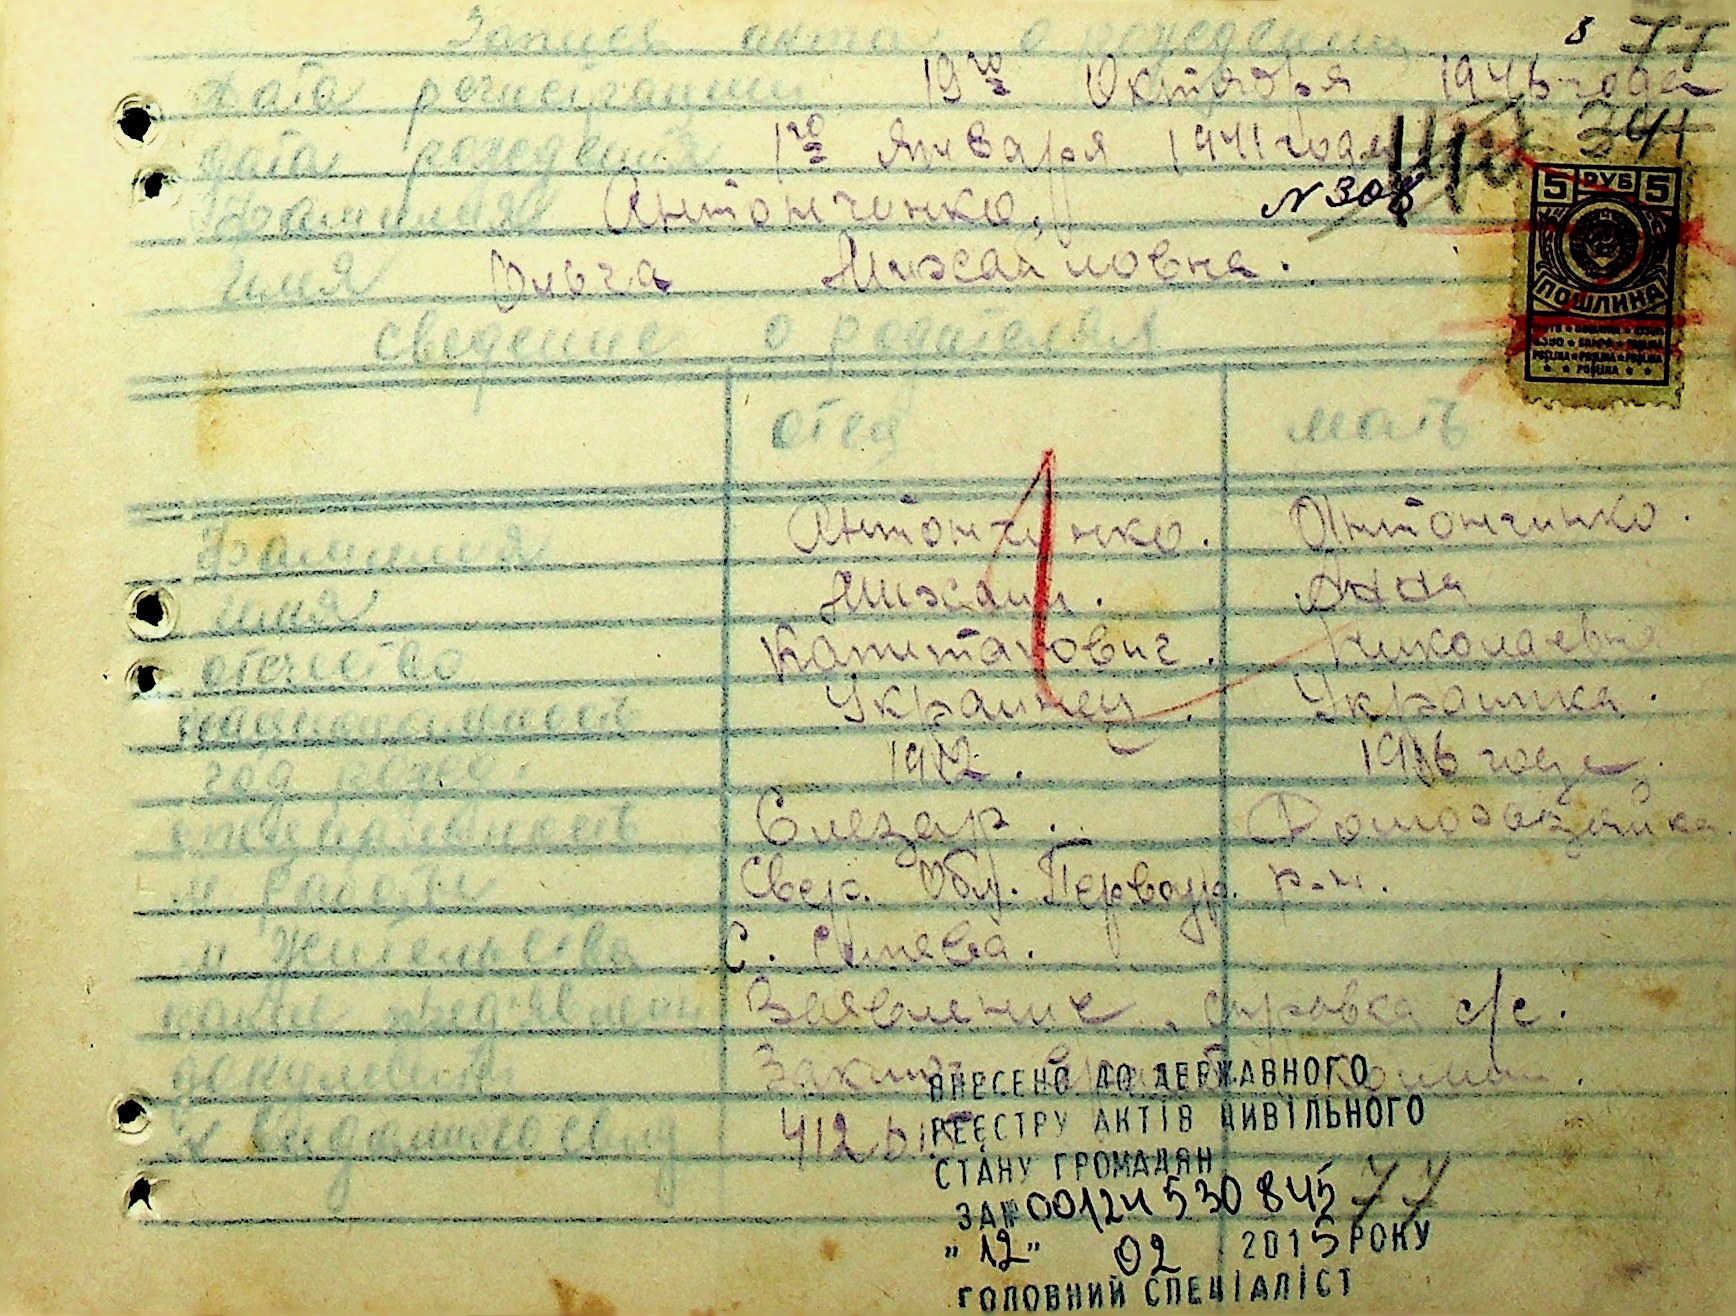 Запись акта о рождении 8 77
Дата регистрации 19го Октября 1946 года
Дата рождения 1го Января 1941 года 341
Фамилия Антончинко, N 308
Имя Ольга Михайловна.
5 РУБ 5
ПОШЛИНА
сведение о родителях
отец мать
Фамилия Антончинко. Антончинко.
имя Михаил. Анна
отечество Капитанович. Николаевна
национальность Украинец. Украинка.
год рожд. 1912. 1916 года.
специальность Слезар. Домохазайка
м работы Свер. Обл. Первоур. р-н.
м жительства С. Слтева.
какие предъявлены Заявление, справка с/с.
документы Заключ.
N выданного свид 412
ВНЕСЕНО ДО ДЕРЖАВНОГО
РЕЄСТРУ АКТІВ ЦИВІЛЬНОГО
СТАНУ ГРОМАДЯН
ЗА № 00124530845 77
" 12 " 02 2015 РОКУ
ГОЛОВНИЙ СПЕЦІАЛІСТ